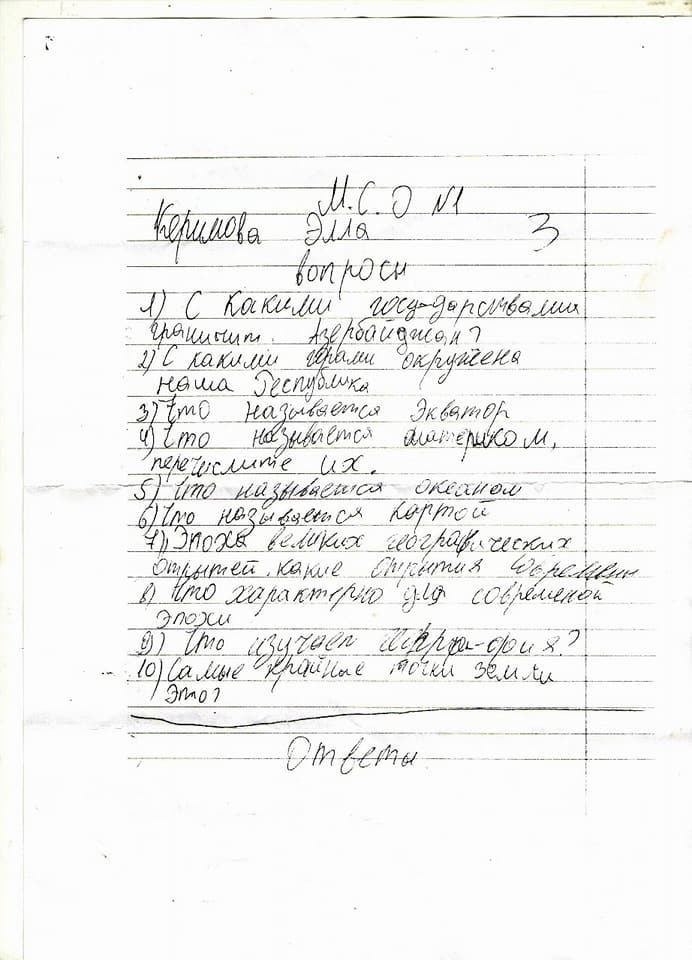 М.С.О №1
Керимова Элла 3
вопросы
1) С какими государствами
граничит. Азербайджан?
2) С какими горами окружена
наша Республика
3) Что называется Экватор
4) Что называется материком,
перечислите их.
5) Что называется океаном
6) Что называется картой
7) Эпоха великих географических
отрытей. какие открытия
8) Что характерно для современой
Эпохи
9) Что изучает ?
10) Самые крайные точки земли
Это?
Ответы